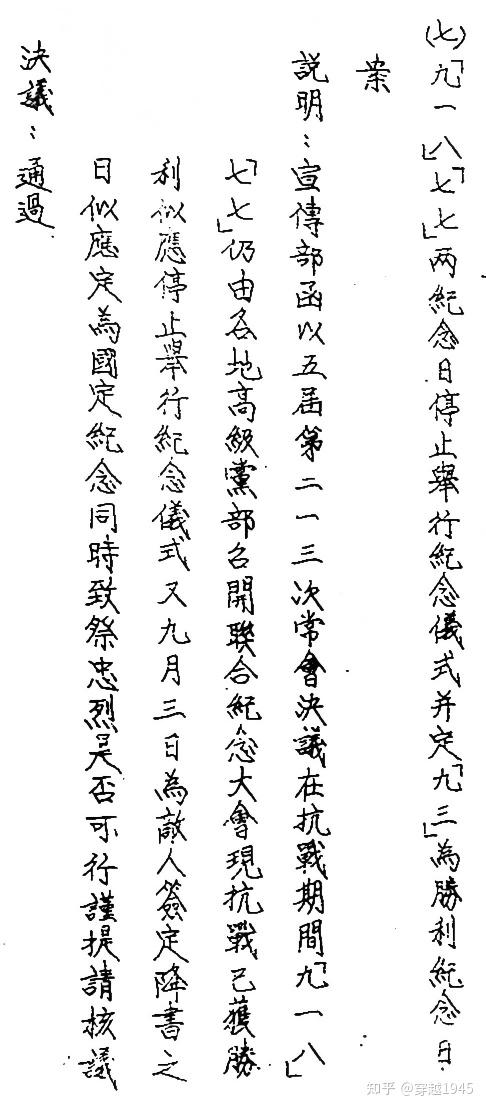 (七)「九一八」「七七」两紀念日停止舉行紀念儀式并定「九三」為勝利紀念日
案
説明：宣傳部函以五届第二一三次常會決議在抗戰期間「九一八」
「七七」仍由各地高級黨部召開聯合紀念大會現抗戰已獲勝
利似應停止舉行紀念儀式又九月三日為敵人簽定降書之
日似應定為國定紀念同時致祭忠烈是否可行謹提請核議
決議：通過
知乎 @穿越1945